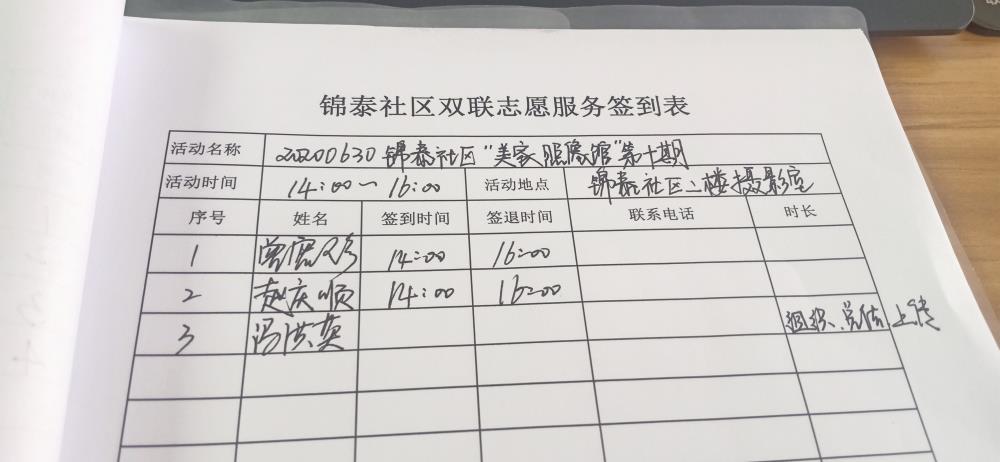 锦泰社区双联志愿服务签到表
活动名称 20200630 锦泰社区"美家照像馆"第十期
活动时间 14:00～16:00 活动地点 锦泰社区二楼摄影室
序号 姓名 签到时间 签退时间 联系电话 时长
1 曾 14:00 16:00
2 赵庆顺 14:00 16:00
3 冯洪英 组织、总结上传